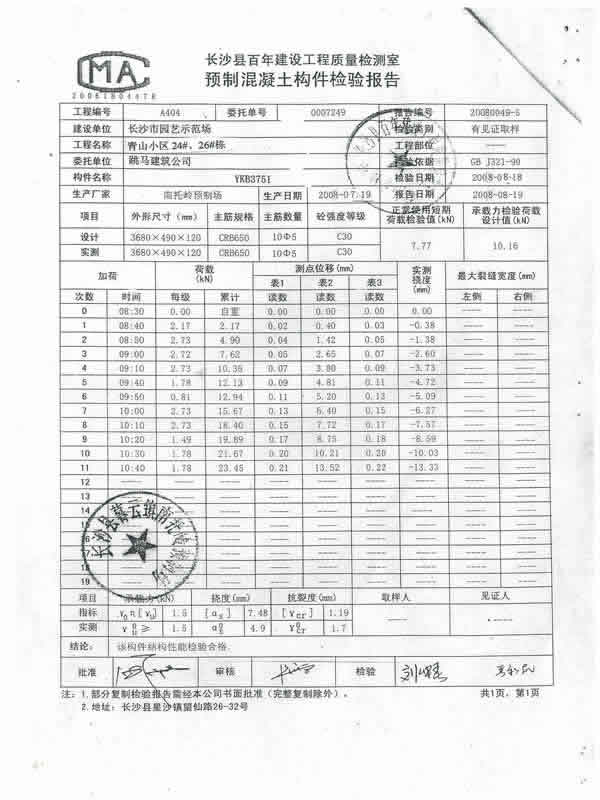 CMA
长沙县百年建设工程质量检测室
预制混凝土构件检验报告
工程编号 A404 委托单号 0007249 报告编号 20080049-5
建设单位 长沙市园艺示范场 检验类别 有见证取样
工程名称 青山小区24#、26#栋 工程部位 —
委托单位 跳马建筑公司 检验依据 GB J321-90
构件名称 YKB3751 检验日期 2008-08-18
生产厂家 南托岭预制场 生产日期 2008-07-19 报告日期 2008-08-19
项目 外形尺寸(mm) 主筋规格 主筋数量 砼强度等级 正常使用短期荷载检验值(kN) 承载力检验荷载设计值(kN)
设计 3680×490×120 CRB650 10Φ5 C30 7.77 10.16
实测 3680×490×120 CRB650 10Φ5 C30
加荷 荷载(kN) 测点位移(mm) 实测挠度(mm) 最大裂缝宽度(mm)
表1 表2 表3
次数 时间 每级 累计 读数 读数 读数 左侧 右侧
0 08:30 0.00 自重 0.00 0.00 0.00 0.00 ---- ----
1 08:40 2.17 2.17 0.02 0.40 0.03 -0.38 ---- ----
2 08:50 2.73 4.90 0.04 1.42 0.05 -1.38 ---- ----
3 09:00 2.72 7.62 0.05 2.65 0.07 -2.60 ---- ----
4 09:10 2.73 10.35 0.07 3.80 0.09 -3.73 ---- ----
5 09:40 1.78 12.13 0.09 4.81 0.11 -4.72 ---- ----
6 09:50 0.81 12.94 0.11 5.20 0.13 -5.09 ---- ----
7 10:00 2.73 15.67 0.13 6.40 0.15 -6.27 ---- ----
8 10:10 2.73 18.40 0.15 7.72 0.17 -7.57 ---- ----
9 10:20 1.49 19.89 0.17 8.75 0.18 -8.59 ---- ----
10 10:30 1.78 21.67 0.20 10.21 0.20 -10.03 ---- ----
11 10:40 1.78 23.45 0.21 13.52 0.22 -13.33 ---- ----
12
13
14
19
项目 承载力(kN) 挠度(mm) 抗裂度(mm) 取样人 见证人
指标 γ₀η[γu] 1.5 [αs] 7.48 [γcr] 1.19
实测 1.5 4.9 1.7
结论: 该构件结构性能检验合格.
批准 审核 检验
注:1.部分复制检验报告需经本公司书面批准(完整复制除外)。 共1页,第1页
2.地址:长沙县星沙镇望仙路26-32号